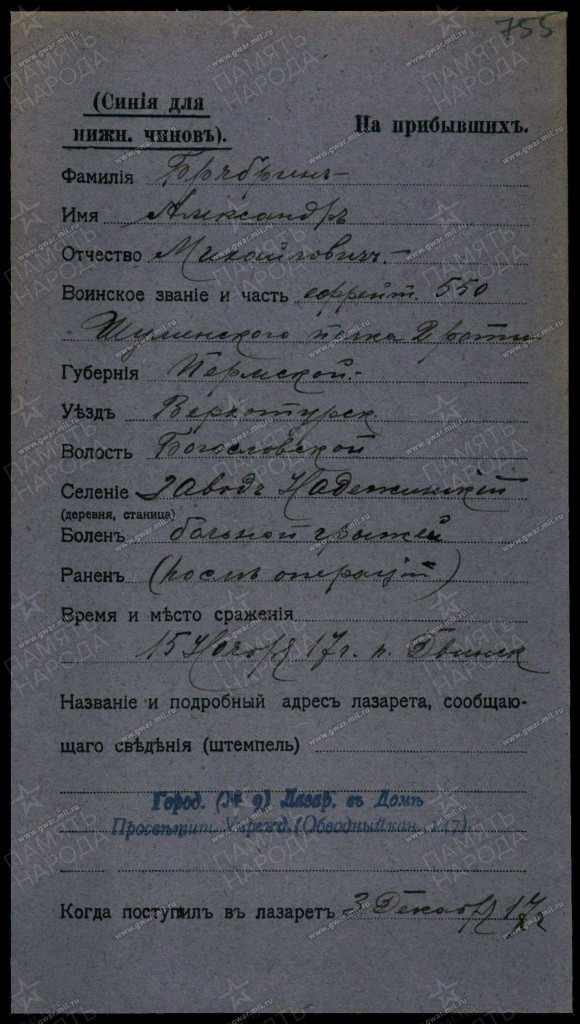 755
(Синія для
нижн. чиновъ).
На прибывшихъ.
Фамилія
Имя Александръ
Отчество Михайловичъ
Воинское званіе и часть ефрейт. 550
полка 2 роты
Губернія Пермской
Уѣздъ Верхотурск
Волость Богословской
Селеніе заводъ Надеждинскій
(деревня, станица)
Боленъ больной грыжей
Раненъ (послѣ операцій)
Время и мѣсто сраженія
15 Ноября 17 г. г. Двинск
Названіе и подробный адресъ лазарета, сообщаю-
щаго свѣдѣнія (штемпель)
Город. (№ 9) Лазар. въ Домѣ
Просвѣтит. Учрежд. (Обводный кан. 17).
Когда поступилъ въ лазаретъ 3 Декабря 17 г
ПАМЯТЬ НАРОДА
www.gwar.mil.ru